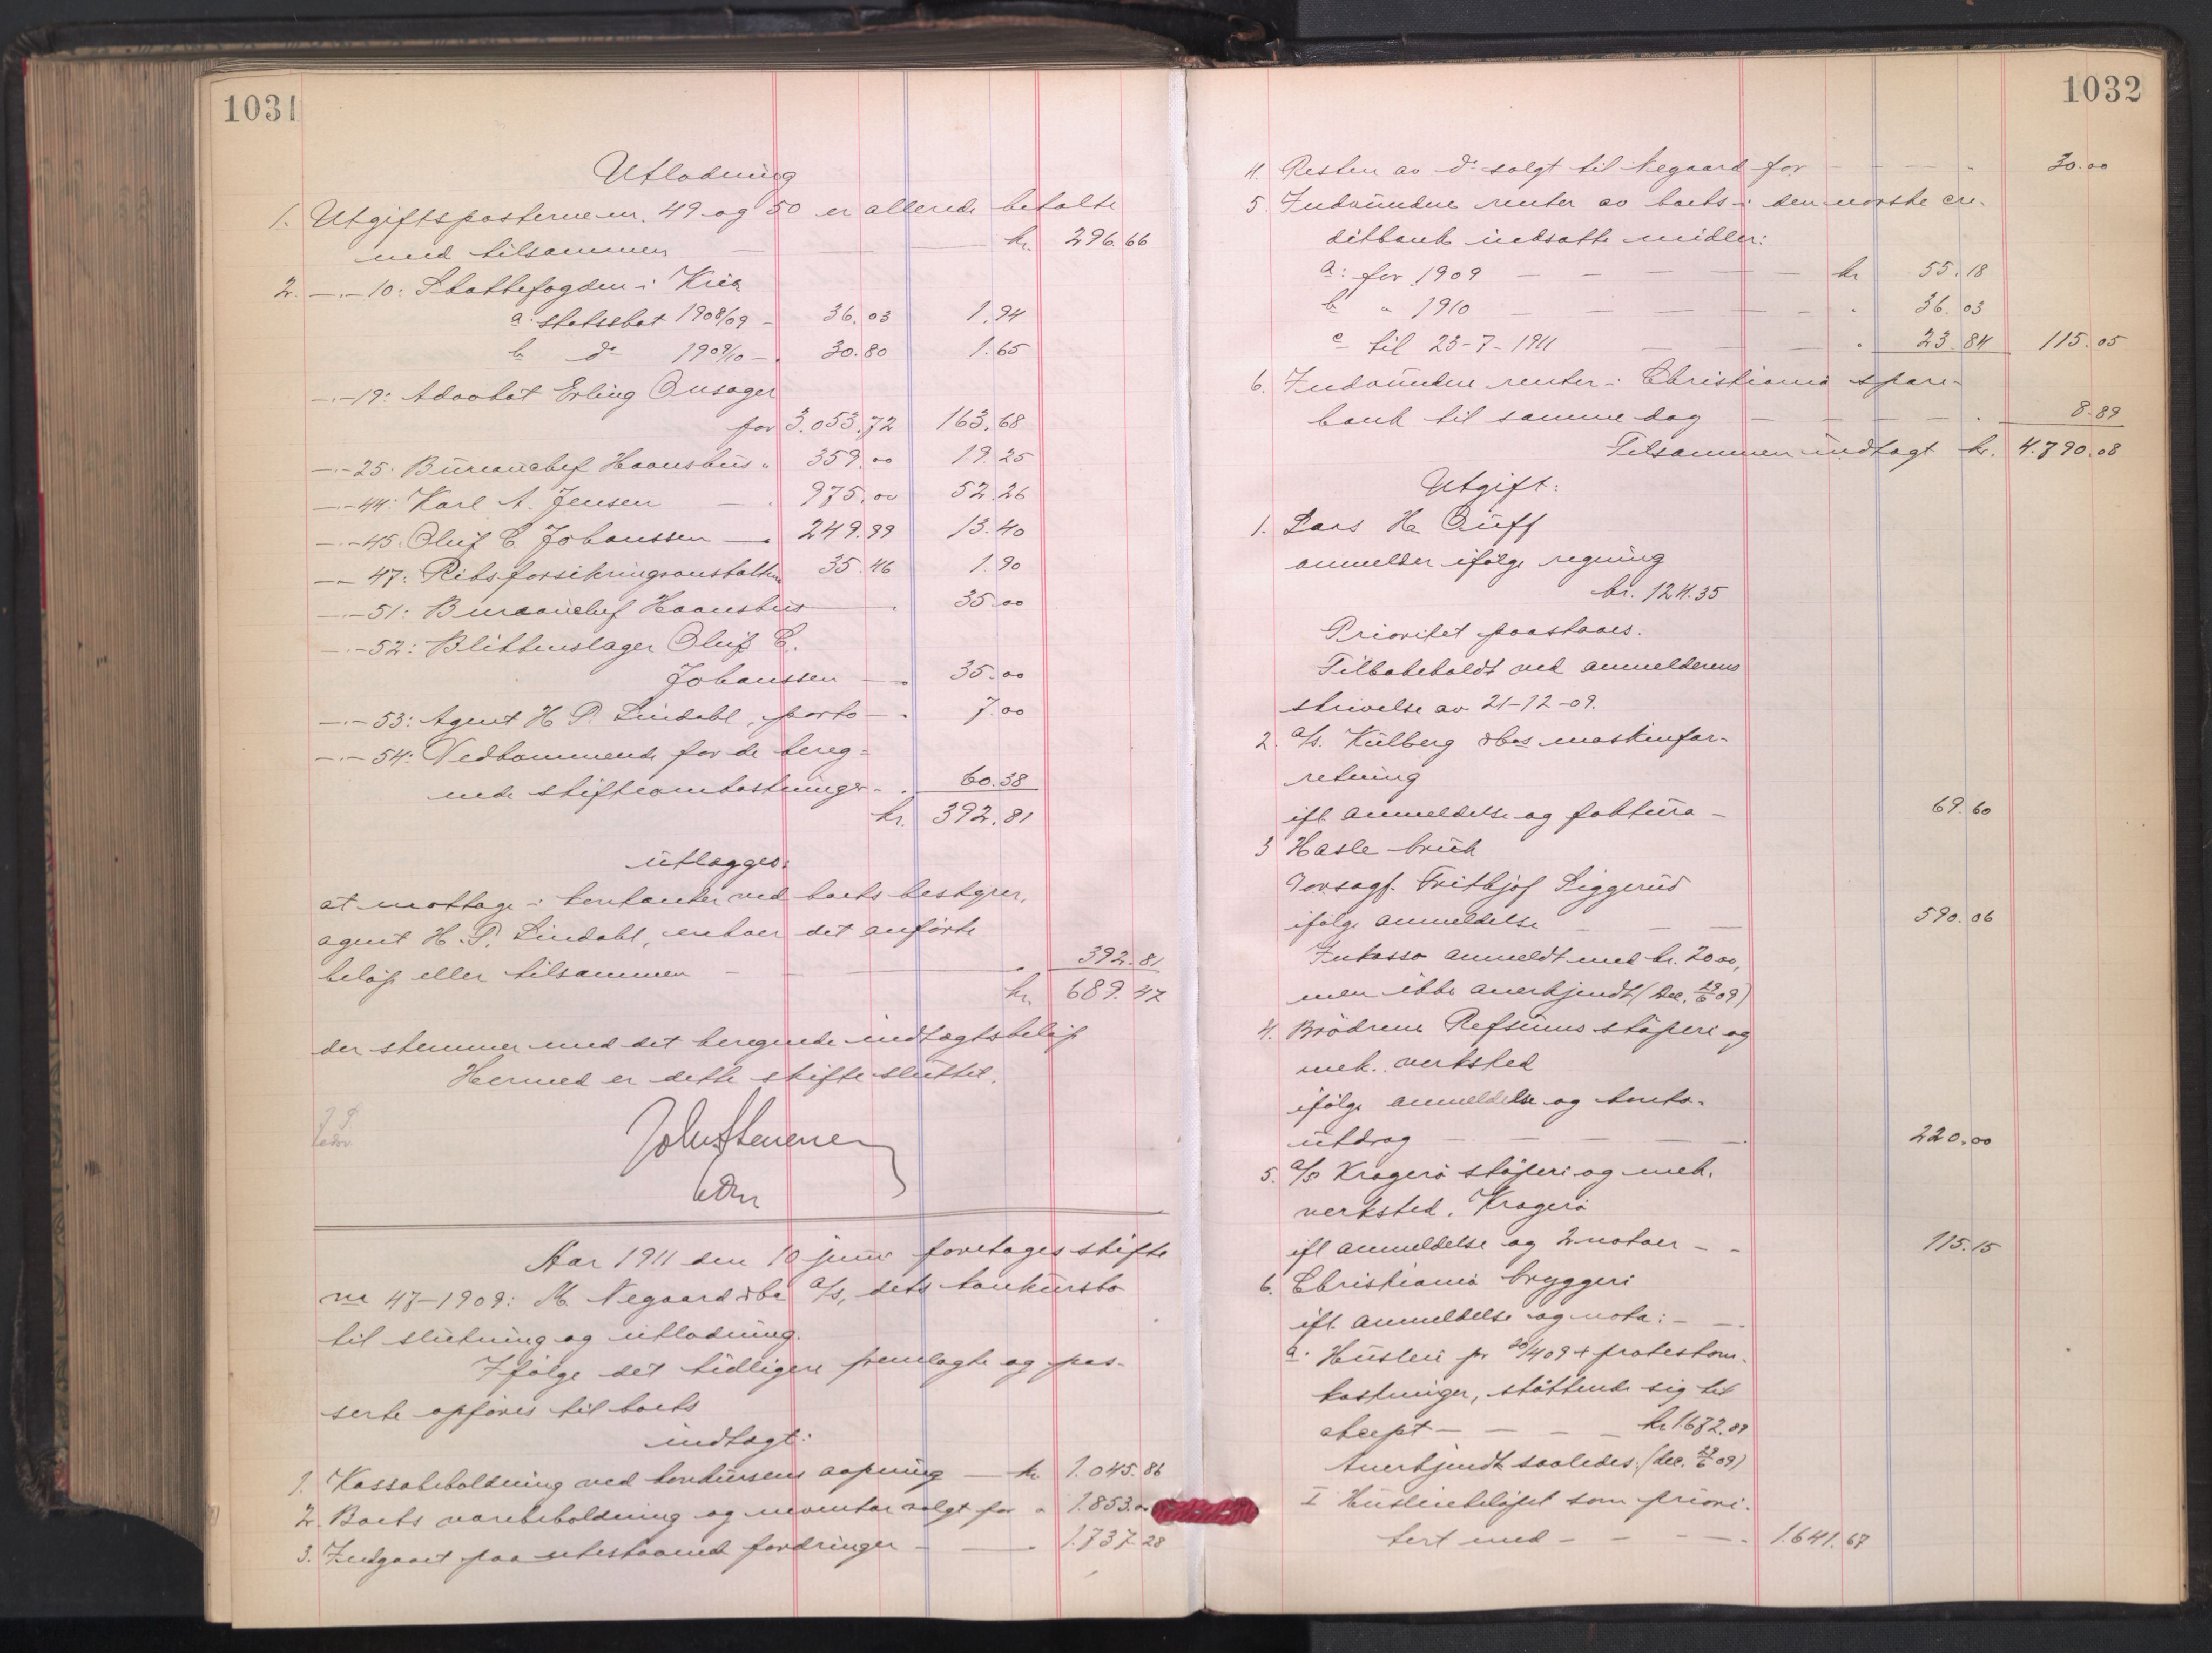 1031
Utlodning
1. Utgiftsposterne nr. 49 og 50 er allerede betalte
med tilsammen — — kr. 296.66
2. —"— 10: Skattefogden i Kria
a: statsskat 1908/09 - 36.03 1.94
b do 1909/10 - 30.80 1.65
—"— 19: Advokat Erling Onsager
for 3.053.72 163.68
—"— 25: Bureauchef Haanshus " 359.00 19.25
—"— 44: Karl A. Jensen — 975.00 52.26
—"— 45: Oluf E Johanssen — 249.99 13.40
—"— 47: Riksforsikringsanstalten 35.46 1.90
—"— 51: Bureauchef Haanshus — 35.00
—"— 52: Blikkenslager Oluf E.
Johanssen — 35.00
—"— 53: Agent H. P. Lindahl, porto — 7.00
—"— 54: Vedkommende for de bereg-
nede skifteomkostninger - 60.38
kr. 392.81
utlægges:
at motta​ge i kontanter ved boets bestyrer,
agent H. P. Lindahl, enhver det anførte
beløp eller tilsammen — — 392.81
kr. 689.47
der stemmer med det beregnede indtægtsbeløp
Hermed er dette skifte sluttet.
Aar 1911 den 10 juni foretages skifte
nr 47-1909: M. Negaard & Co A/S, dets konkursbo
til slutning og utlodning.
Ifølge det tidligere fremlagte og pas-
serte opføres til boets
indtægt:
1. Kassabeholdning ved konkursens aapning — kr 1.045.86
2. Boets varebeholdning og inventar solgt for " 1.853.00
3. Indgaaet paa utestaaende fordringer — — 1.737.28
1032
4. Resten av do solgt til Negaard for — — 30.00
5. Indvundne renter av boets i den norske cre-
ditbank indsatte midler:
a: for 1909 — — — kr 55.18
b " 1910 — — — " 36.03
c til 23-7-1911 — — " 23.84 115.05
6. Indvundne renter i Christiania spare-
bank til samme dag — — 8.89
Tilsammen indtægt kr. 4.790.08
Utgift:
1. Lars H.
anmelder ifølge regning
kr. 124.35
Prioritet paastaaes.
Tilbakekaldt ved anmelderens
skrivelse av 21-12-09.
2. A/S. Külberg & Cos maskinfor-
retning
ifl. anmeldelse og faktura - 69.60
3 Hasle bruk
Oversagf. Frithjof Siggerud
ifølge anmeldelse — — 590.06
Inkasso anmeldt med kr. 20.00,
men ikke anerkjendt (dec. 29/6 09)
4. Brødrene Refsums støperi og
mek. verksted
ifølge anmeldelse og konto-
utdrag — — — 220.00
5. A/S Kragerø støperi og mek.
verksted, Kragerø
ifl anmeldelse og 2 notaer — - 115.15
6. Christiania bryggeri
ifl. anmeldelse og nota: — —
a. Husleie pr 20/4 09 + protestom-
kostninger, støttende sig til
aksept — — — kr 1.672.89
Anerkjendt saaledes: (dec. 29/6 09)
I Husleiebeløpet som priori-
tert med — — — 1.641.67